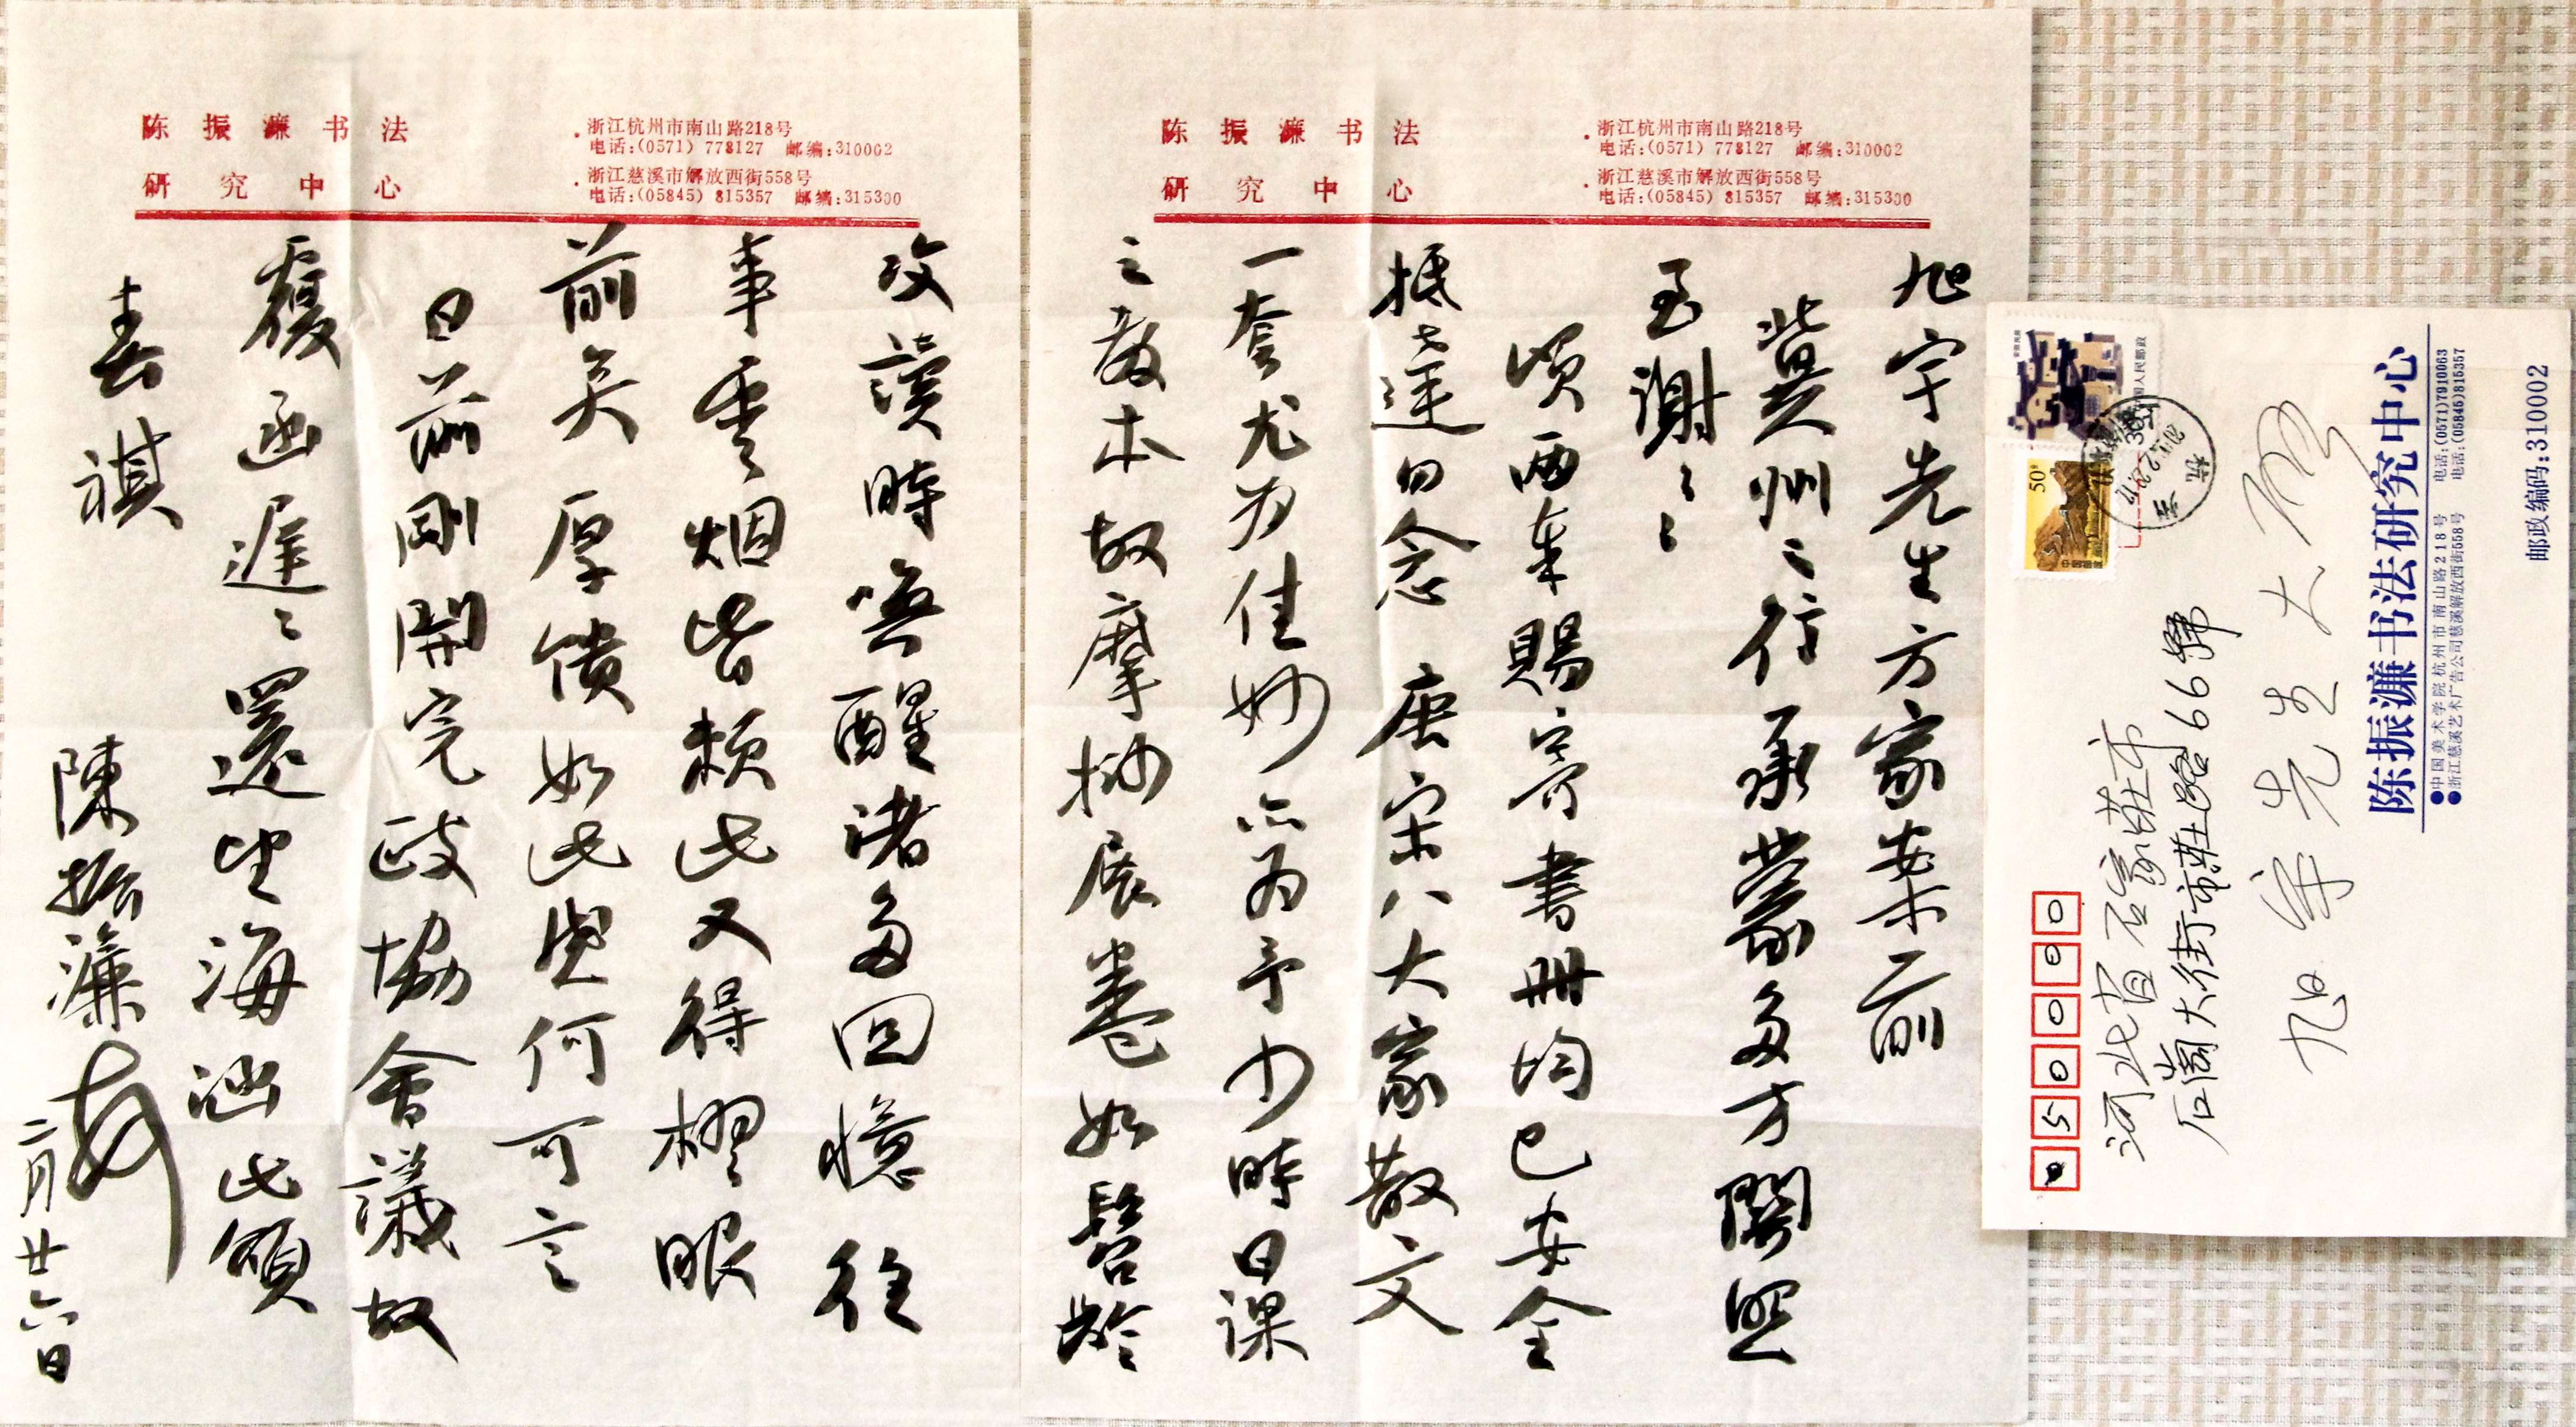 陈振濂书法
研究中心
·浙江杭州市南山路218号
电话:(0571) 778127 邮编:310002
·浙江慈溪市解放西街558号
电话:(05845) 815357 邮编:315300
旭宇先生方家案前
冀州之行承蒙多方關照
至謝〻〻
頃两奉賜寄書冊均已安全
抵達勿念 唐宋八大家散文
一套尤为佳妙亦为予少時日課
之教本故摩挱展卷如髫齡
陈振濂书法
研究中心
·浙江杭州市南山路218号
电话:(0571) 778127 邮编:310002
·浙江慈溪市解放西街558号
电话:(05845) 815357 邮编:315300
攻讀時喚醒諸多回憶往
事雲烟皆赖此又得眼
前矣厚馈如此何可言
日前剛開完政協會議故
覆函遲〻還望海涵此頌
春祺
陳振濂
二月廿六日
050000
河北省石家莊市
石崗大街市莊路66號
旭宇先生大啟
陈振濂书法研究中心
●中国美术学院杭州市南山路218号 电话:(0571)7910063
●浙江慈溪艺术广告公司慈溪解放西街558号 电话:(05845)815357
邮政编码:310002
50分